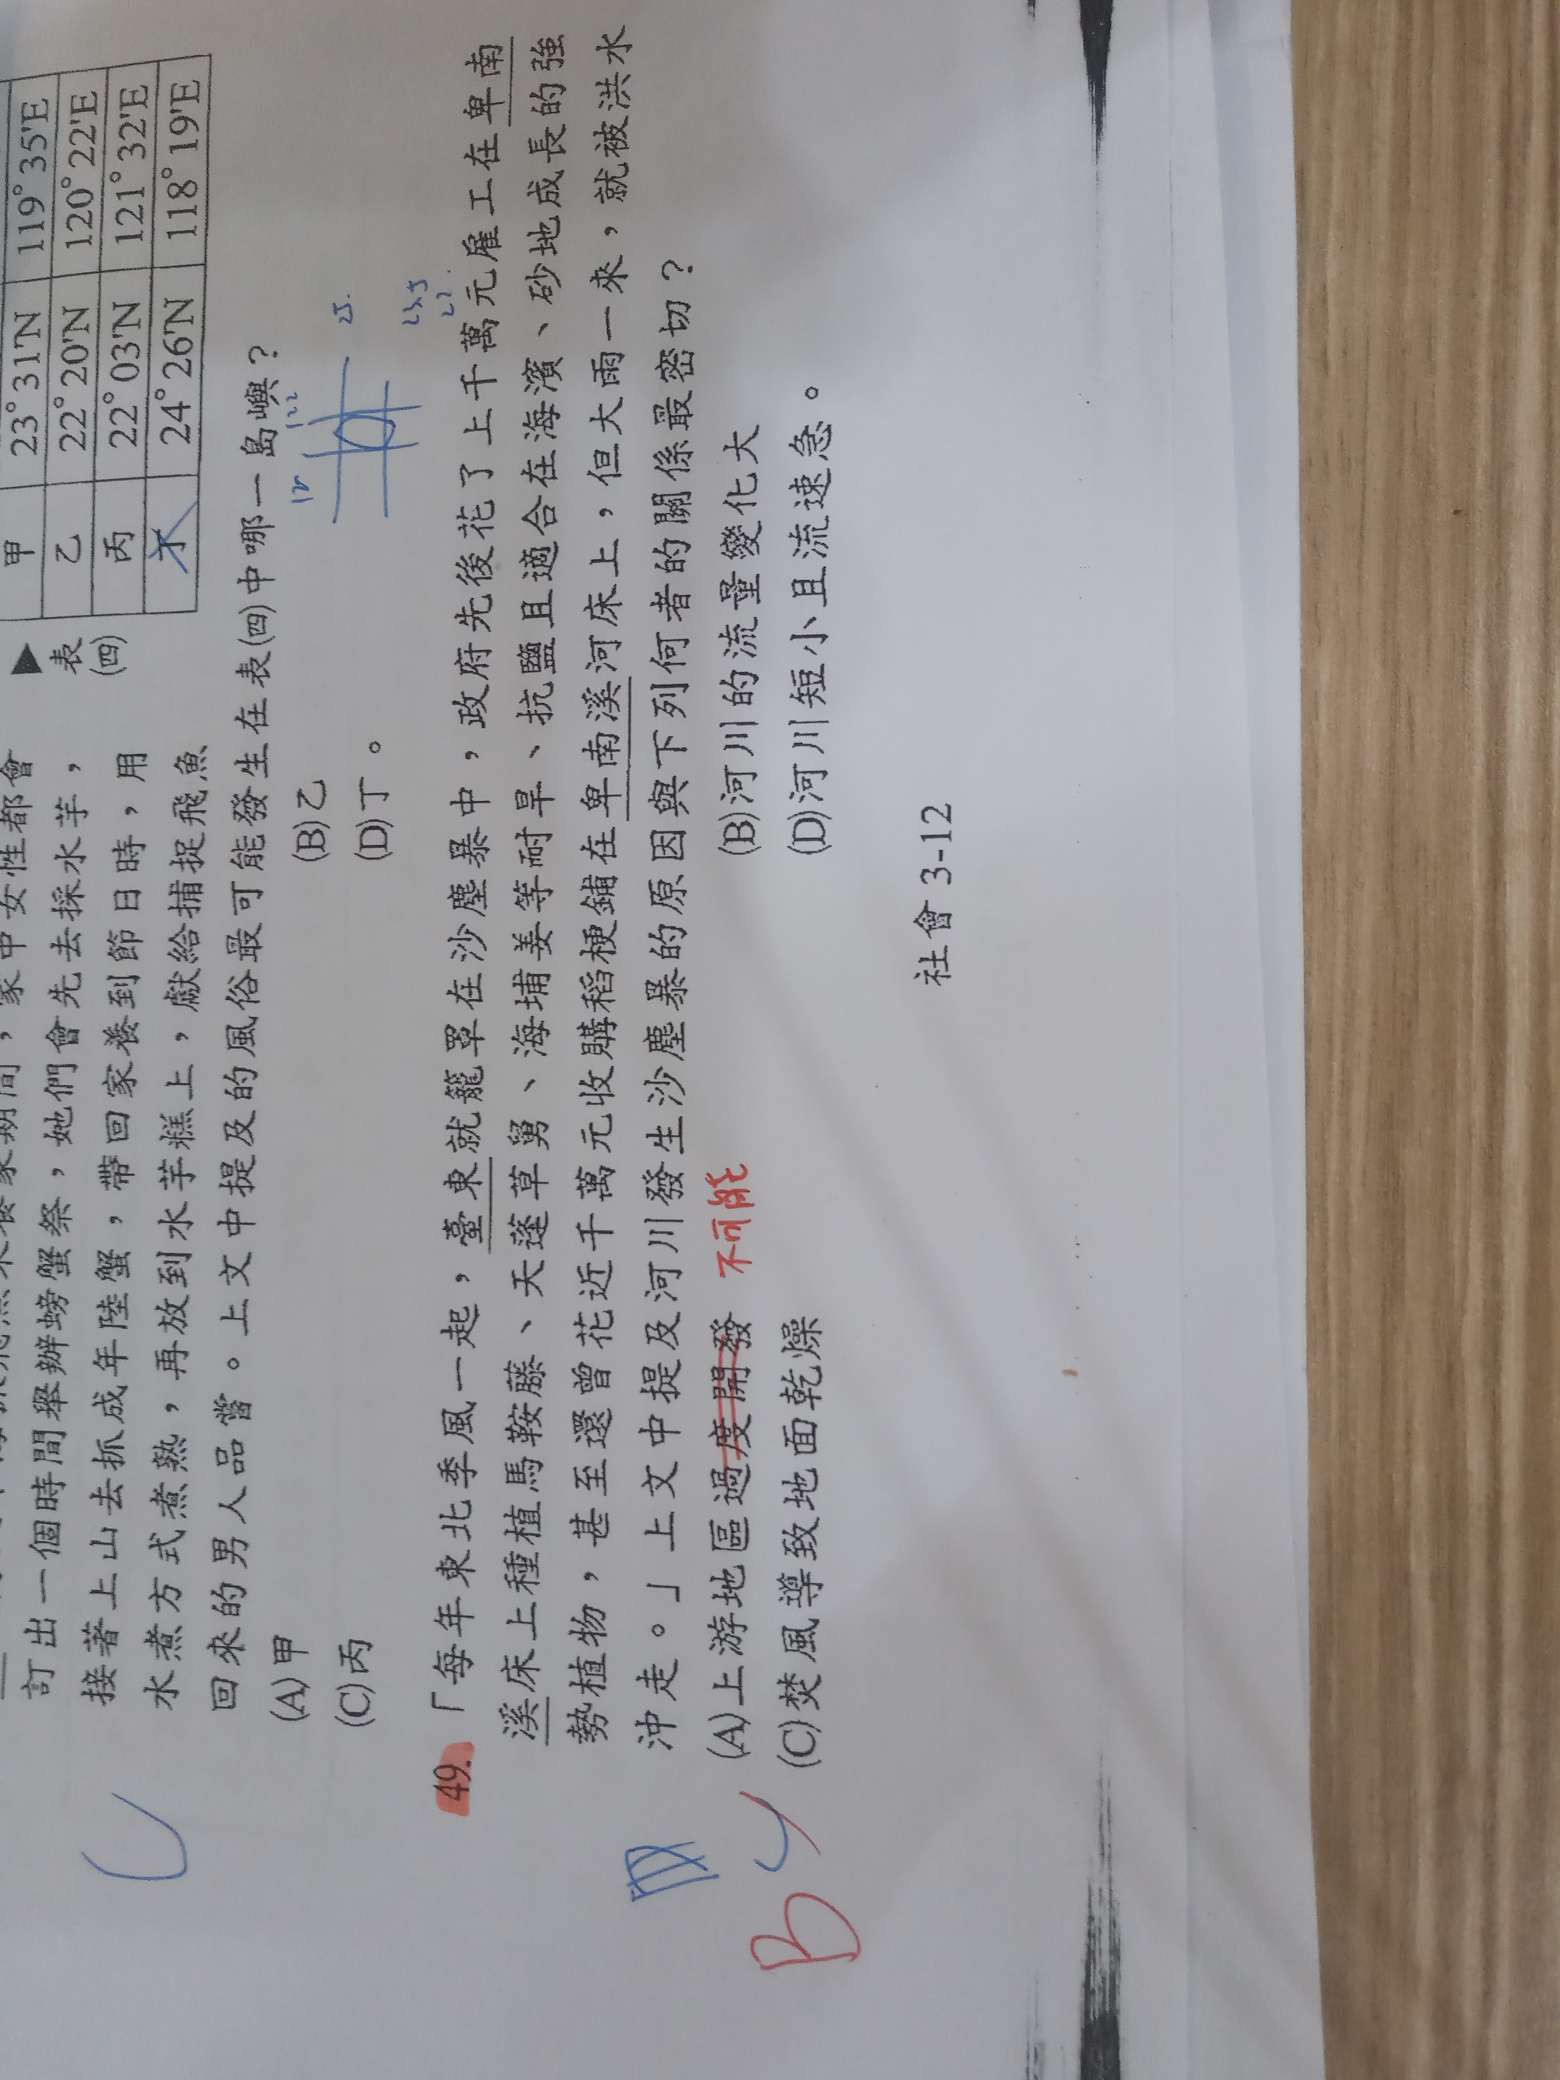 甲 23°31'N 119°35'E
乙 22°20'N 120°22'E
丙 22°03'N 121°32'E
24°26'N 118°19'E
▶表(四)
家中女性都會
訂出一個時間舉辦螃蟹祭，她們會先去採水芋，
接著上山去抓成年陸蟹，帶回家養到節日時，用
水煮方式煮熟，再放到水芋糕上，獻給捕捉飛魚
回來的男人品嘗。上文中提及的風俗最可能發生在表(四)中哪一島嶼？
(A)甲 (B)乙
(C)丙 (D)丁。
122
25.
23.5
49.「每年東北季風一起，臺東就籠罩在沙塵暴中，政府先後花了上千萬元雇工在卑南
溪床上種植馬鞍藤、天蓬草舅、海埔姜等耐旱、抗鹽且適合在海濱、砂地成長的強
勢植物，甚至還曾花近千萬元收購稻梗鋪在卑南溪河床上，但大雨一來，就被洪水
沖走。」上文中提及河川發生沙塵暴的原因與下列何者的關係最密切？
(A)上游地區過度開發 不可能 (B)河川的流量變化大
(C)焚風導致地面乾燥 (D)河川短小且流速急。
B
社會 3-12